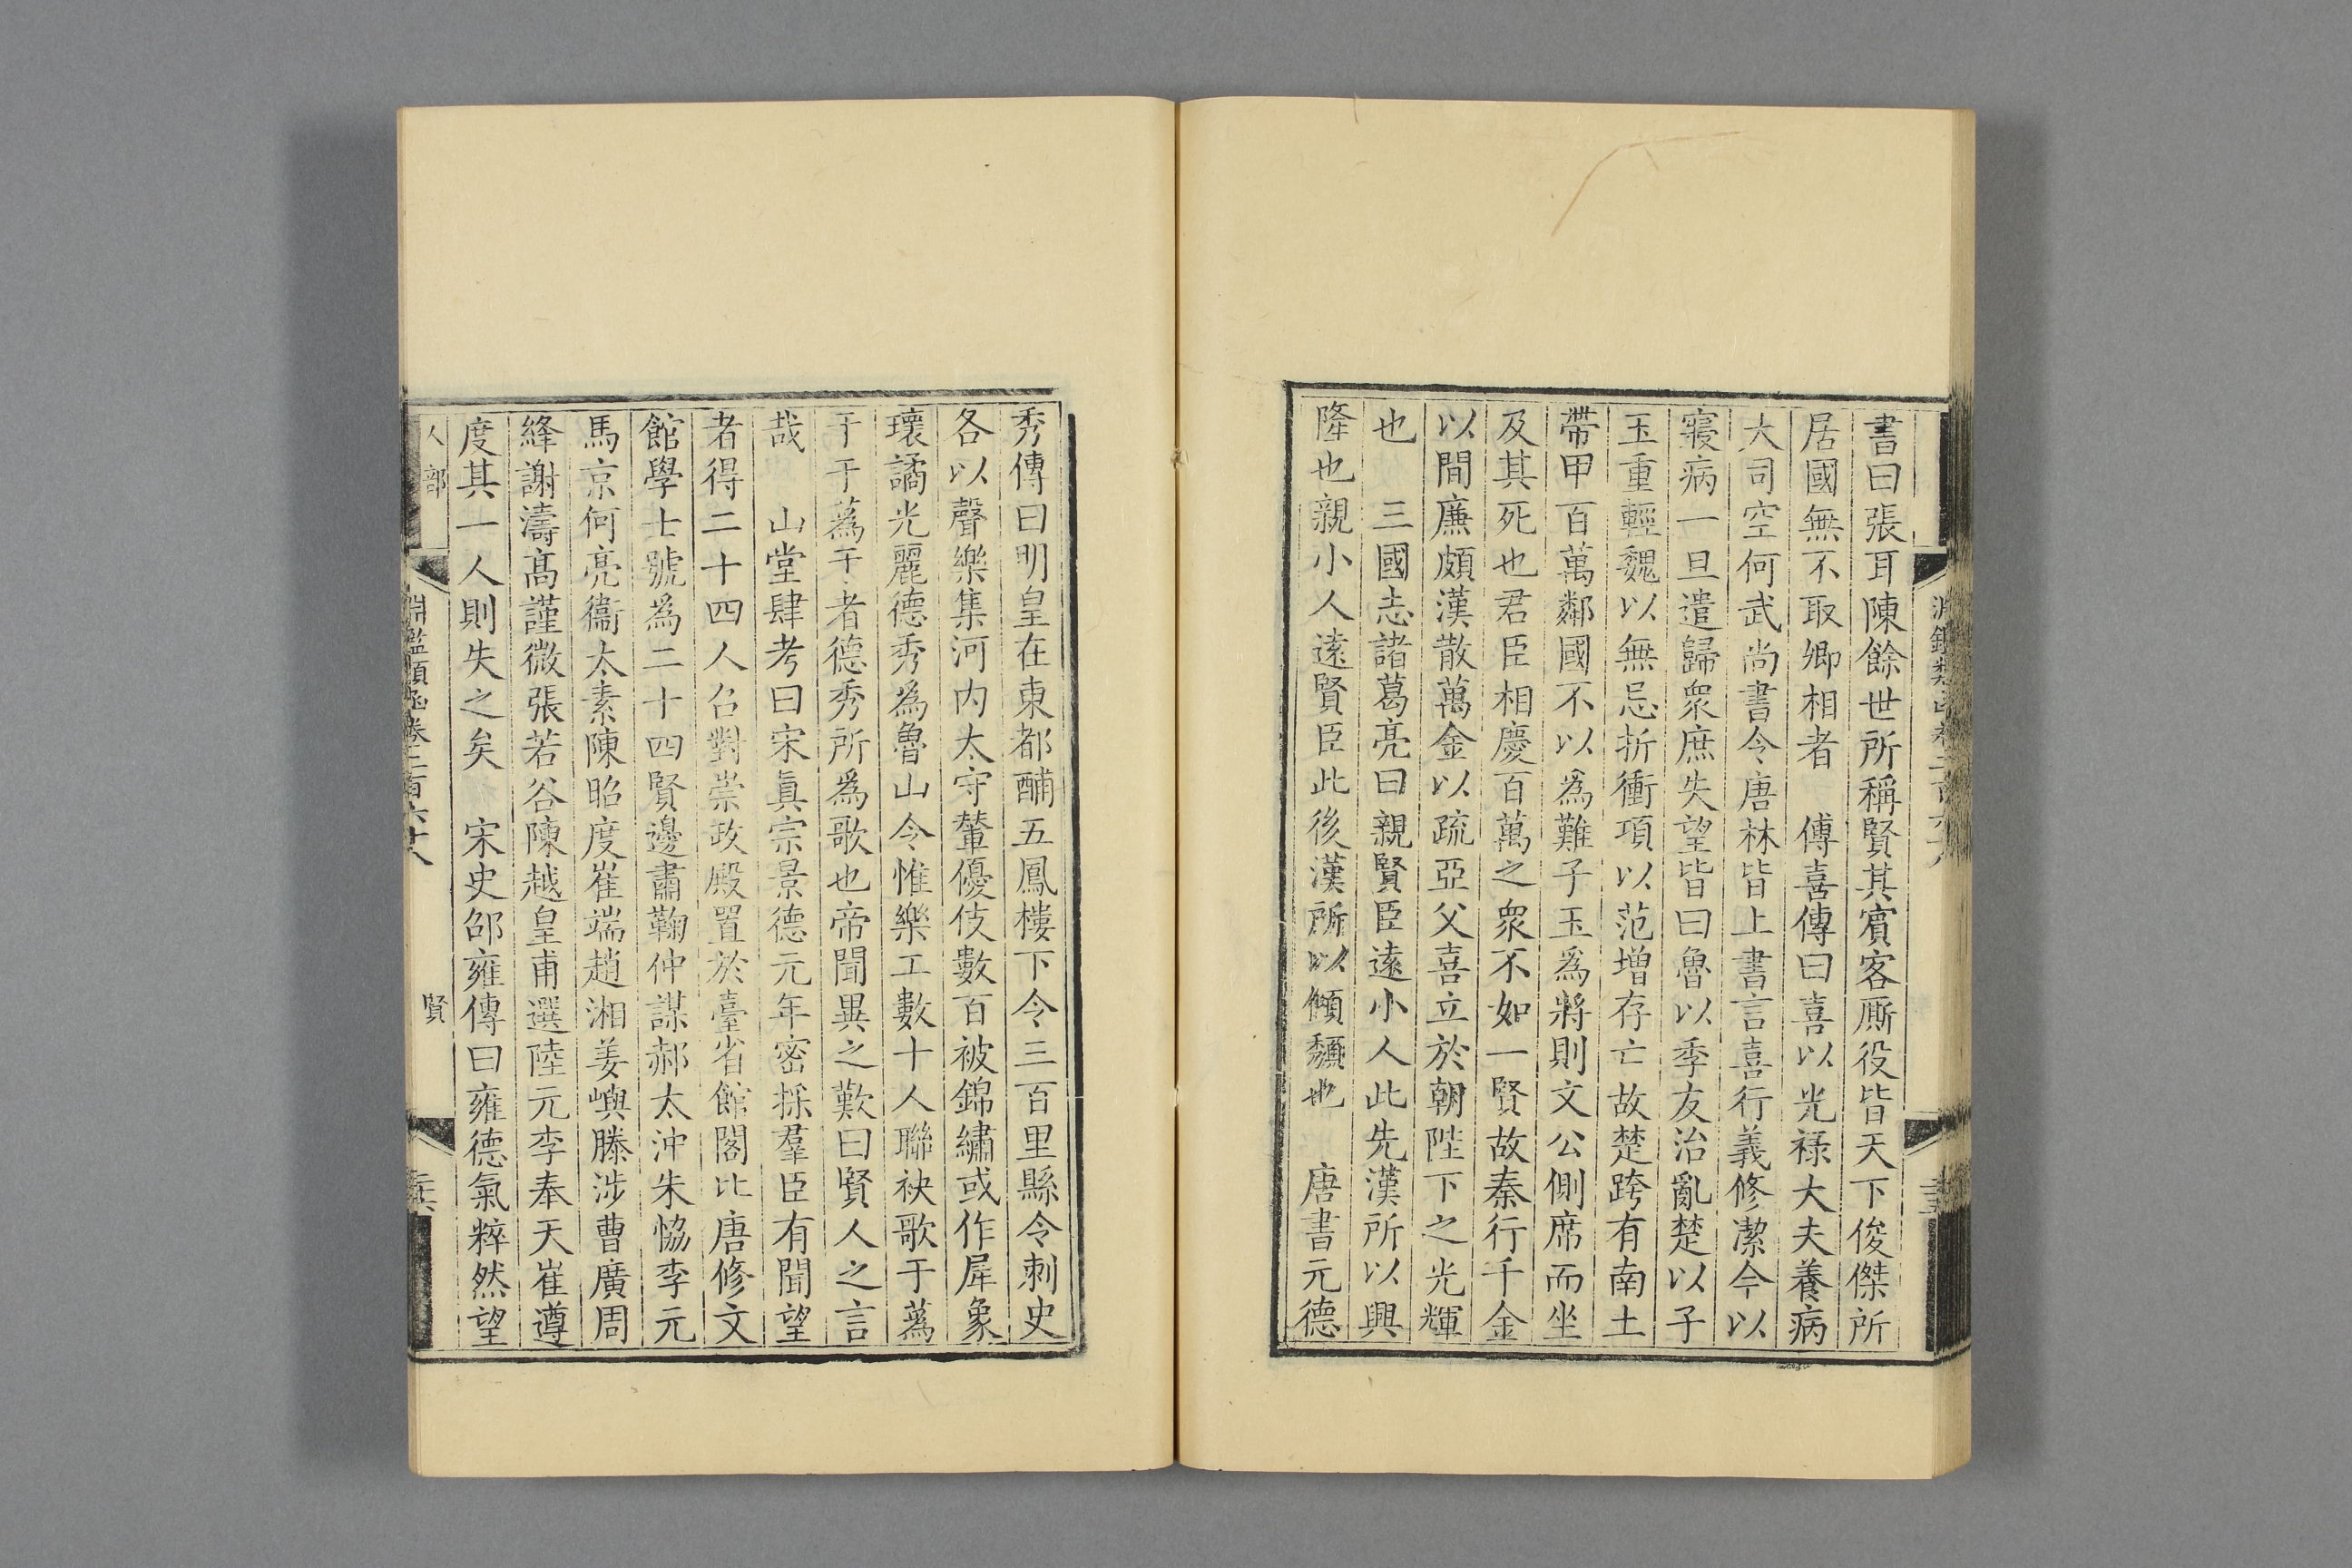 書曰張耳陳餘世所稱賢其賓客厮役皆天下俊傑所
居國無不取卿相者　傅喜傳曰喜以光祿大夫養病
大司空何武尚書令唐林皆上書言喜行義修潔今以
寢病一旦遣歸衆庶失望皆曰魯以季友治亂楚以子
玉重輕魏以無忌折衝項以范增存亡故楚跨有南土
帶甲百萬鄰國不以爲難子玉爲將則文公側席而坐
及其死也君臣相慶百萬之衆不如一賢故秦行千金
以間廉頗漢散萬金以疏亞父喜立於朝陛下之光輝
也　三國志諸葛亮曰親賢臣遠小人此先漢所以興
隆也親小人遠賢臣此後漢所以傾頹也　唐書元德
秀傳曰明皇在東都酺五鳳樓下令三百里縣令刺史
各以聲樂集河內太守輦優伎數百被錦繡或作犀象
瓌譎光麗德秀爲魯山令惟樂工數十人聯袂歌于蔿
于于蔿于者德秀所爲歌也帝聞異之歎曰賢人之言
哉　山堂肆考曰宋真宗景德元年密採羣臣有聞望
者得二十四人召對崇政殿置於臺省館閣比唐修文
館學士號爲二十四賢邊肅鞠仲謀郝太沖朱協李元
馬京何亮衞太素陳昭度崔端趙湘姜嶼滕涉曹廣周
絳謝濤高謹微張若谷陳越皇甫選陸元李奉天崔遵
度其一人則失之矣　宋史邵雍傳曰雍德氣粹然望
人部
淵鑑類函卷二百六十八
賢